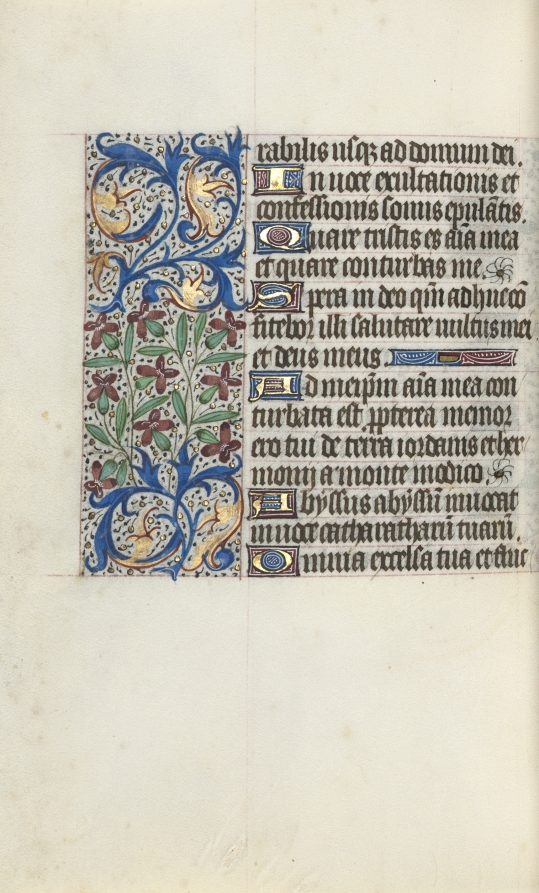 rabilis usq3 ad domum dei.
In uoce exultationis et
confessionis sonus epulātis.
Quare tristis es aīa mea
et quare conturbas me.
Spera in deo qm̄ adhuc cō
fitebor illi salutare uultus mei
et deus meus.
Ad meip̄m aīa mea con
turbata est ꝓpterea memor
ero tui de terra iordanis et her
monij a monte modico.
Abyssus abyssū inuocat
in uoce catharatharū tuarū.
Omnia excelsa tua et fluc